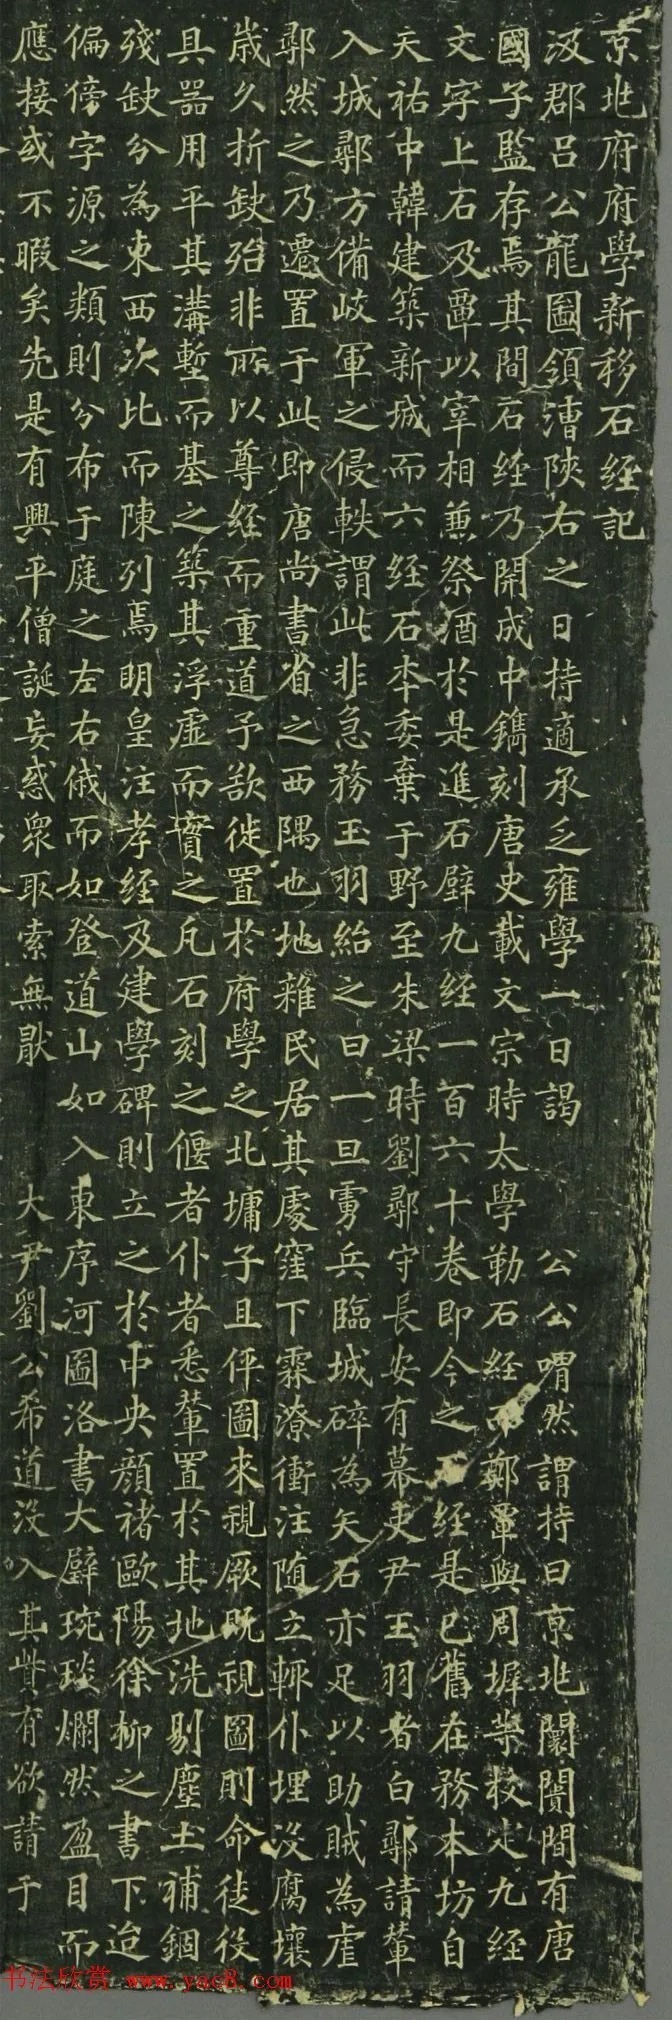 京兆府府學新移石經記
汲郡呂公龍圖領漕陝右之日持適承乏雍學一日謁 公公喟然謂持曰京兆闤闠間有唐
國子監存焉其間石經乃開成中鐫刻唐史載文宗時太學勒石經而鄭覃與周墀等校定九經
文字上石及覃以宰相兼祭酒於是進石壁九經一百六十卷即今之石經是已舊在務本坊自
天祐中韓建築新城而六經石本委棄于野至朱梁時劉鄩守長安有幕吏尹玉羽者白鄩請輦
入城鄩方備岐軍之侵軼謂此非急務玉羽紿之曰一旦虜兵臨城碎為矢石亦足以助賊為虐
鄩然之乃遷置于此即唐尚書省之西隅也地雜民居其處窪下霖潦衝注随立輒仆埋沒腐壤
歲久折缺殆非所以尊經而重道予欲徙置於府學之北墉子且伻圖來視厥既視圖則命徒役
具器用平其溝塹而基之築其浮虛而實之凡石刻之偃者仆者悉輦置於其地洗剔塵土補錮
殘缺分為東西次比而陳列焉明皇注孝經及建學碑則立之於中央顏褚歐陽徐柳之書下迨
偏傍字源之類則分布于庭之左右俄而如登道山如入東序河圖洛書大璧琬琰爛然盈目而
應接或不暇矣先是有興平僧誕妄惑眾取索無猒 大尹劉公希道沒入其貲有欲請于
书法欣赏 www.yac8.com